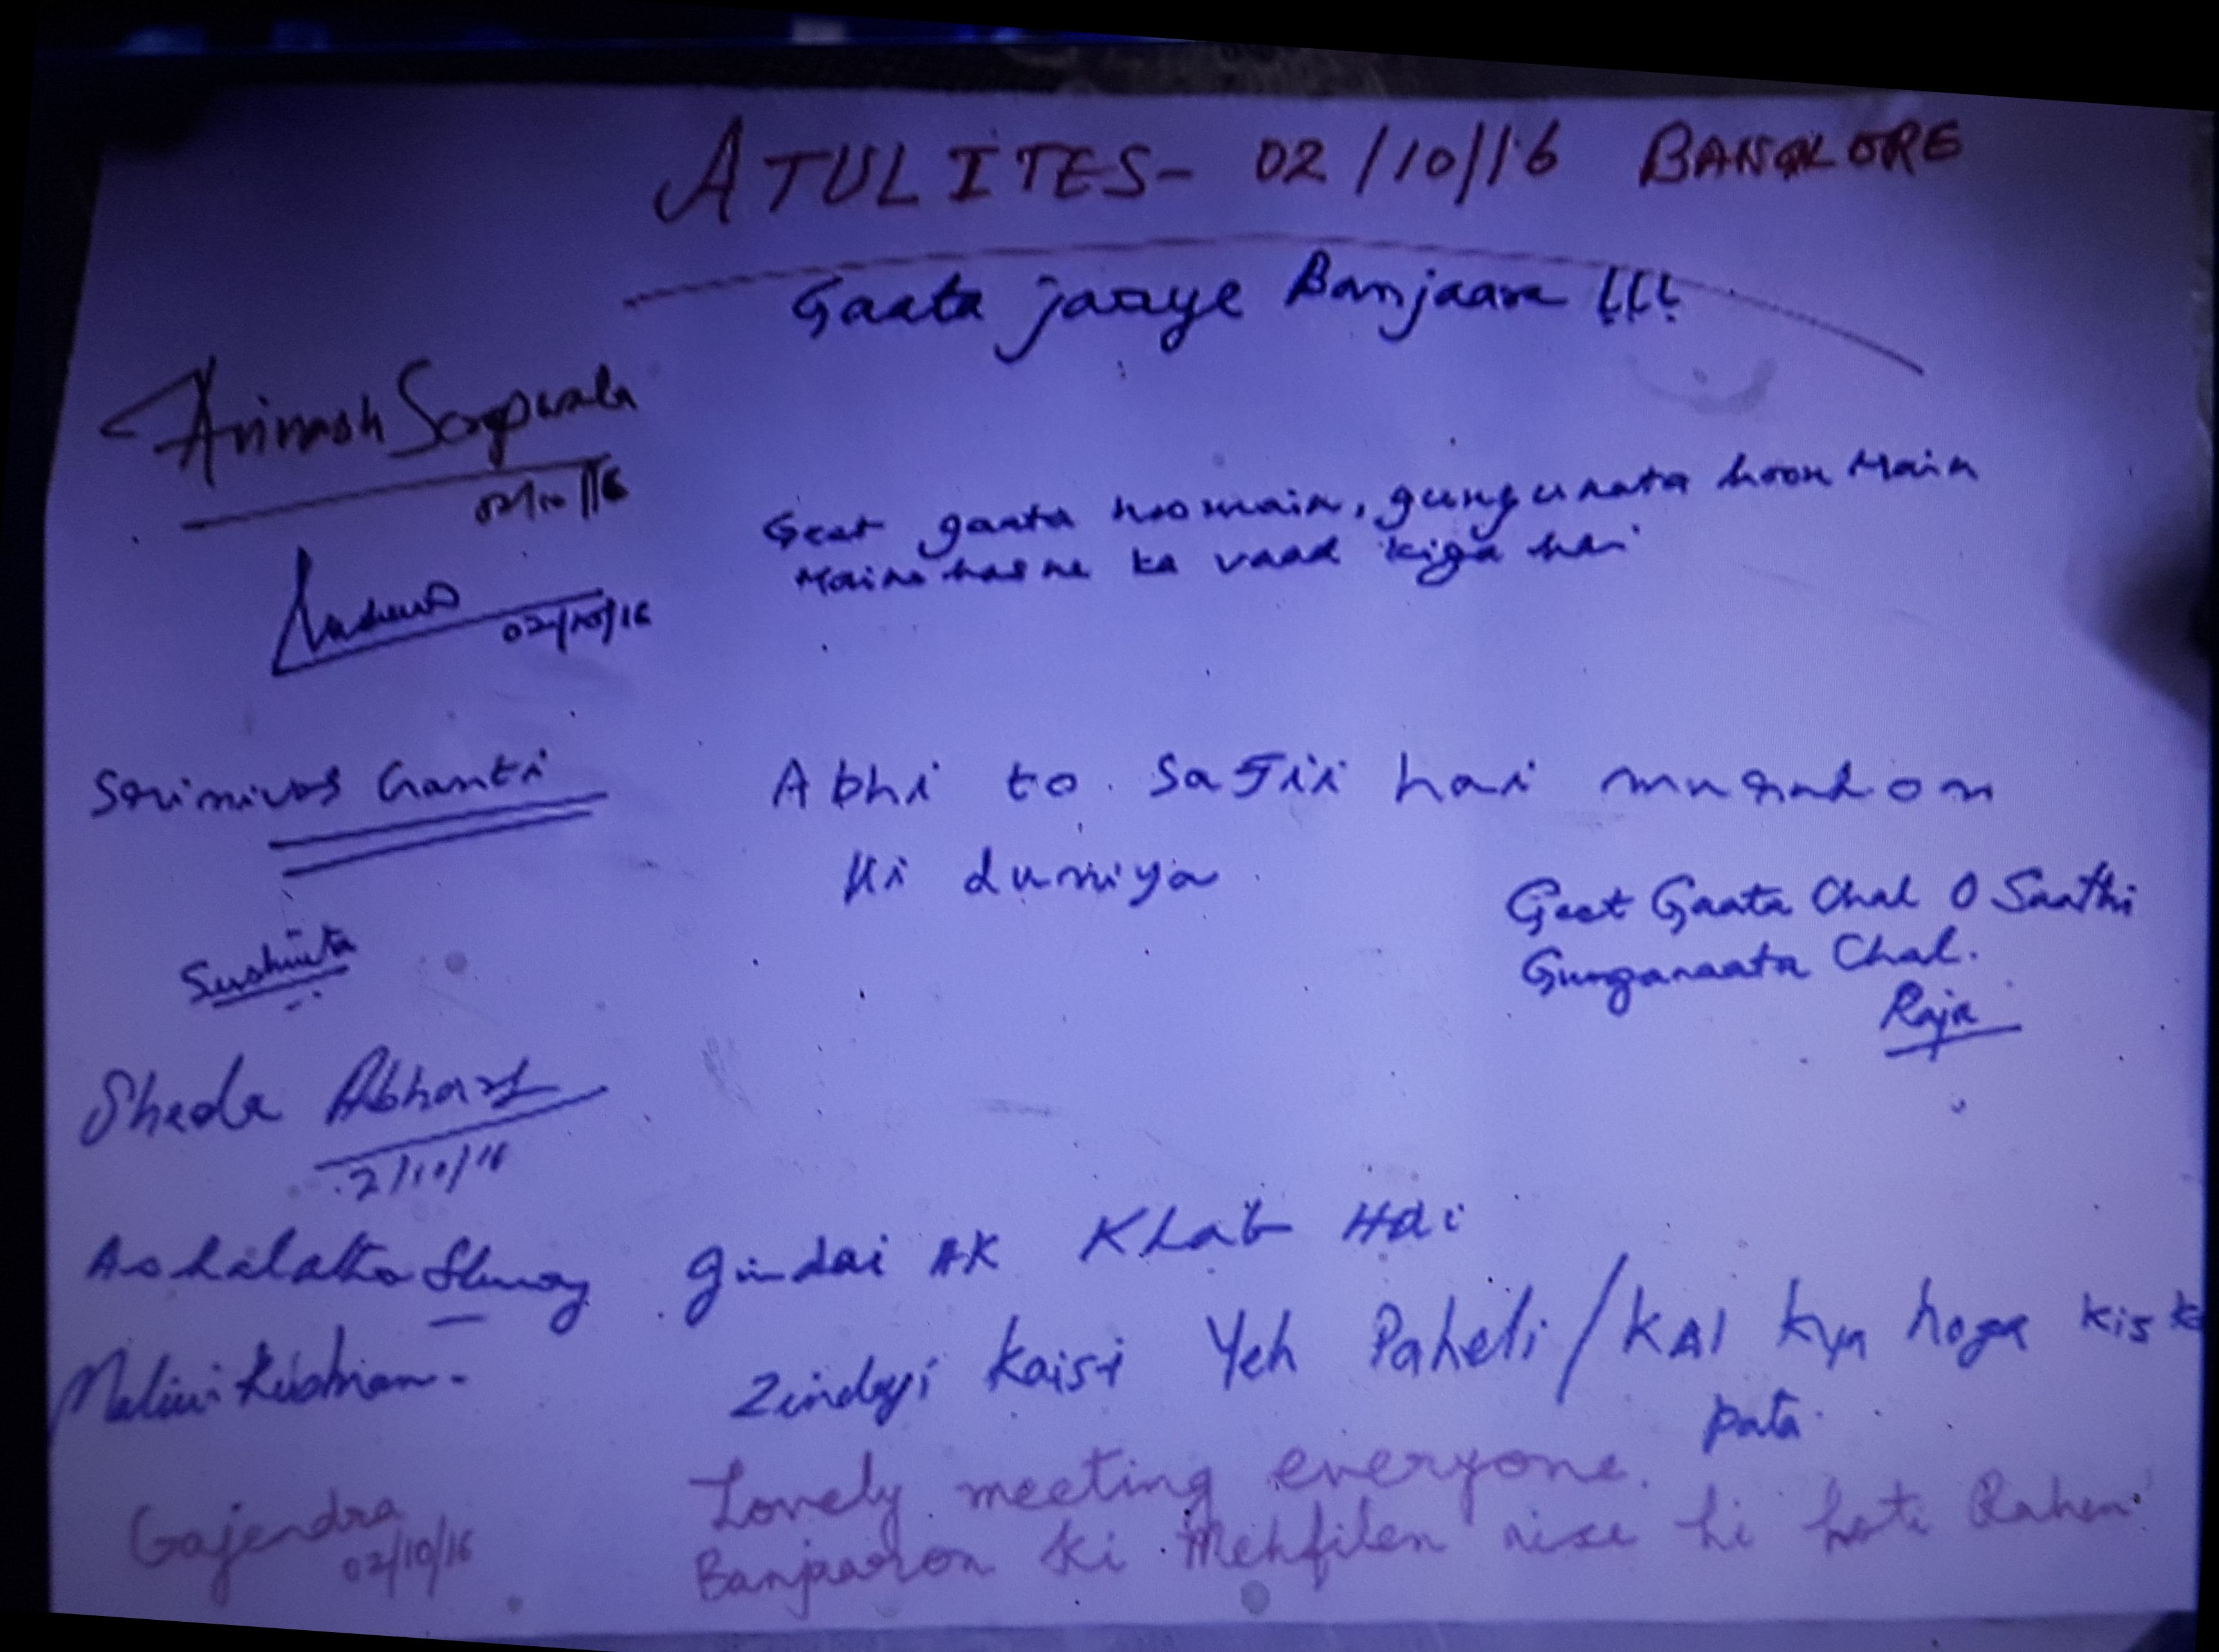 ATULITES- 02/10/16 BANGALORE
Gaata jaaye Banjaara !!!
Avinash Scrapwala
02/10/16
Geet gaata hoo main, gungunata hoon Main
Maine hasne ka vaad kiya hai
02/10/16
Srinivas Ganti
Abhi to sajii hai muradon
Ki duniya
Sushmita
Geet Gaata Chal O Saathi
Gunganaata Chal.
Raja
Sheela
2/10/16
Ashalatha Shenoy
gindai AK Khab Hai
Malini Krishnan.
Zindagi Kaisi Yeh Paheli / KAl kya hoga kis k
pata.
Gajendra
02/10/16
Lovely meeting everyone.
Banjaaron ki Mehfilen aise hi hoti Rahen